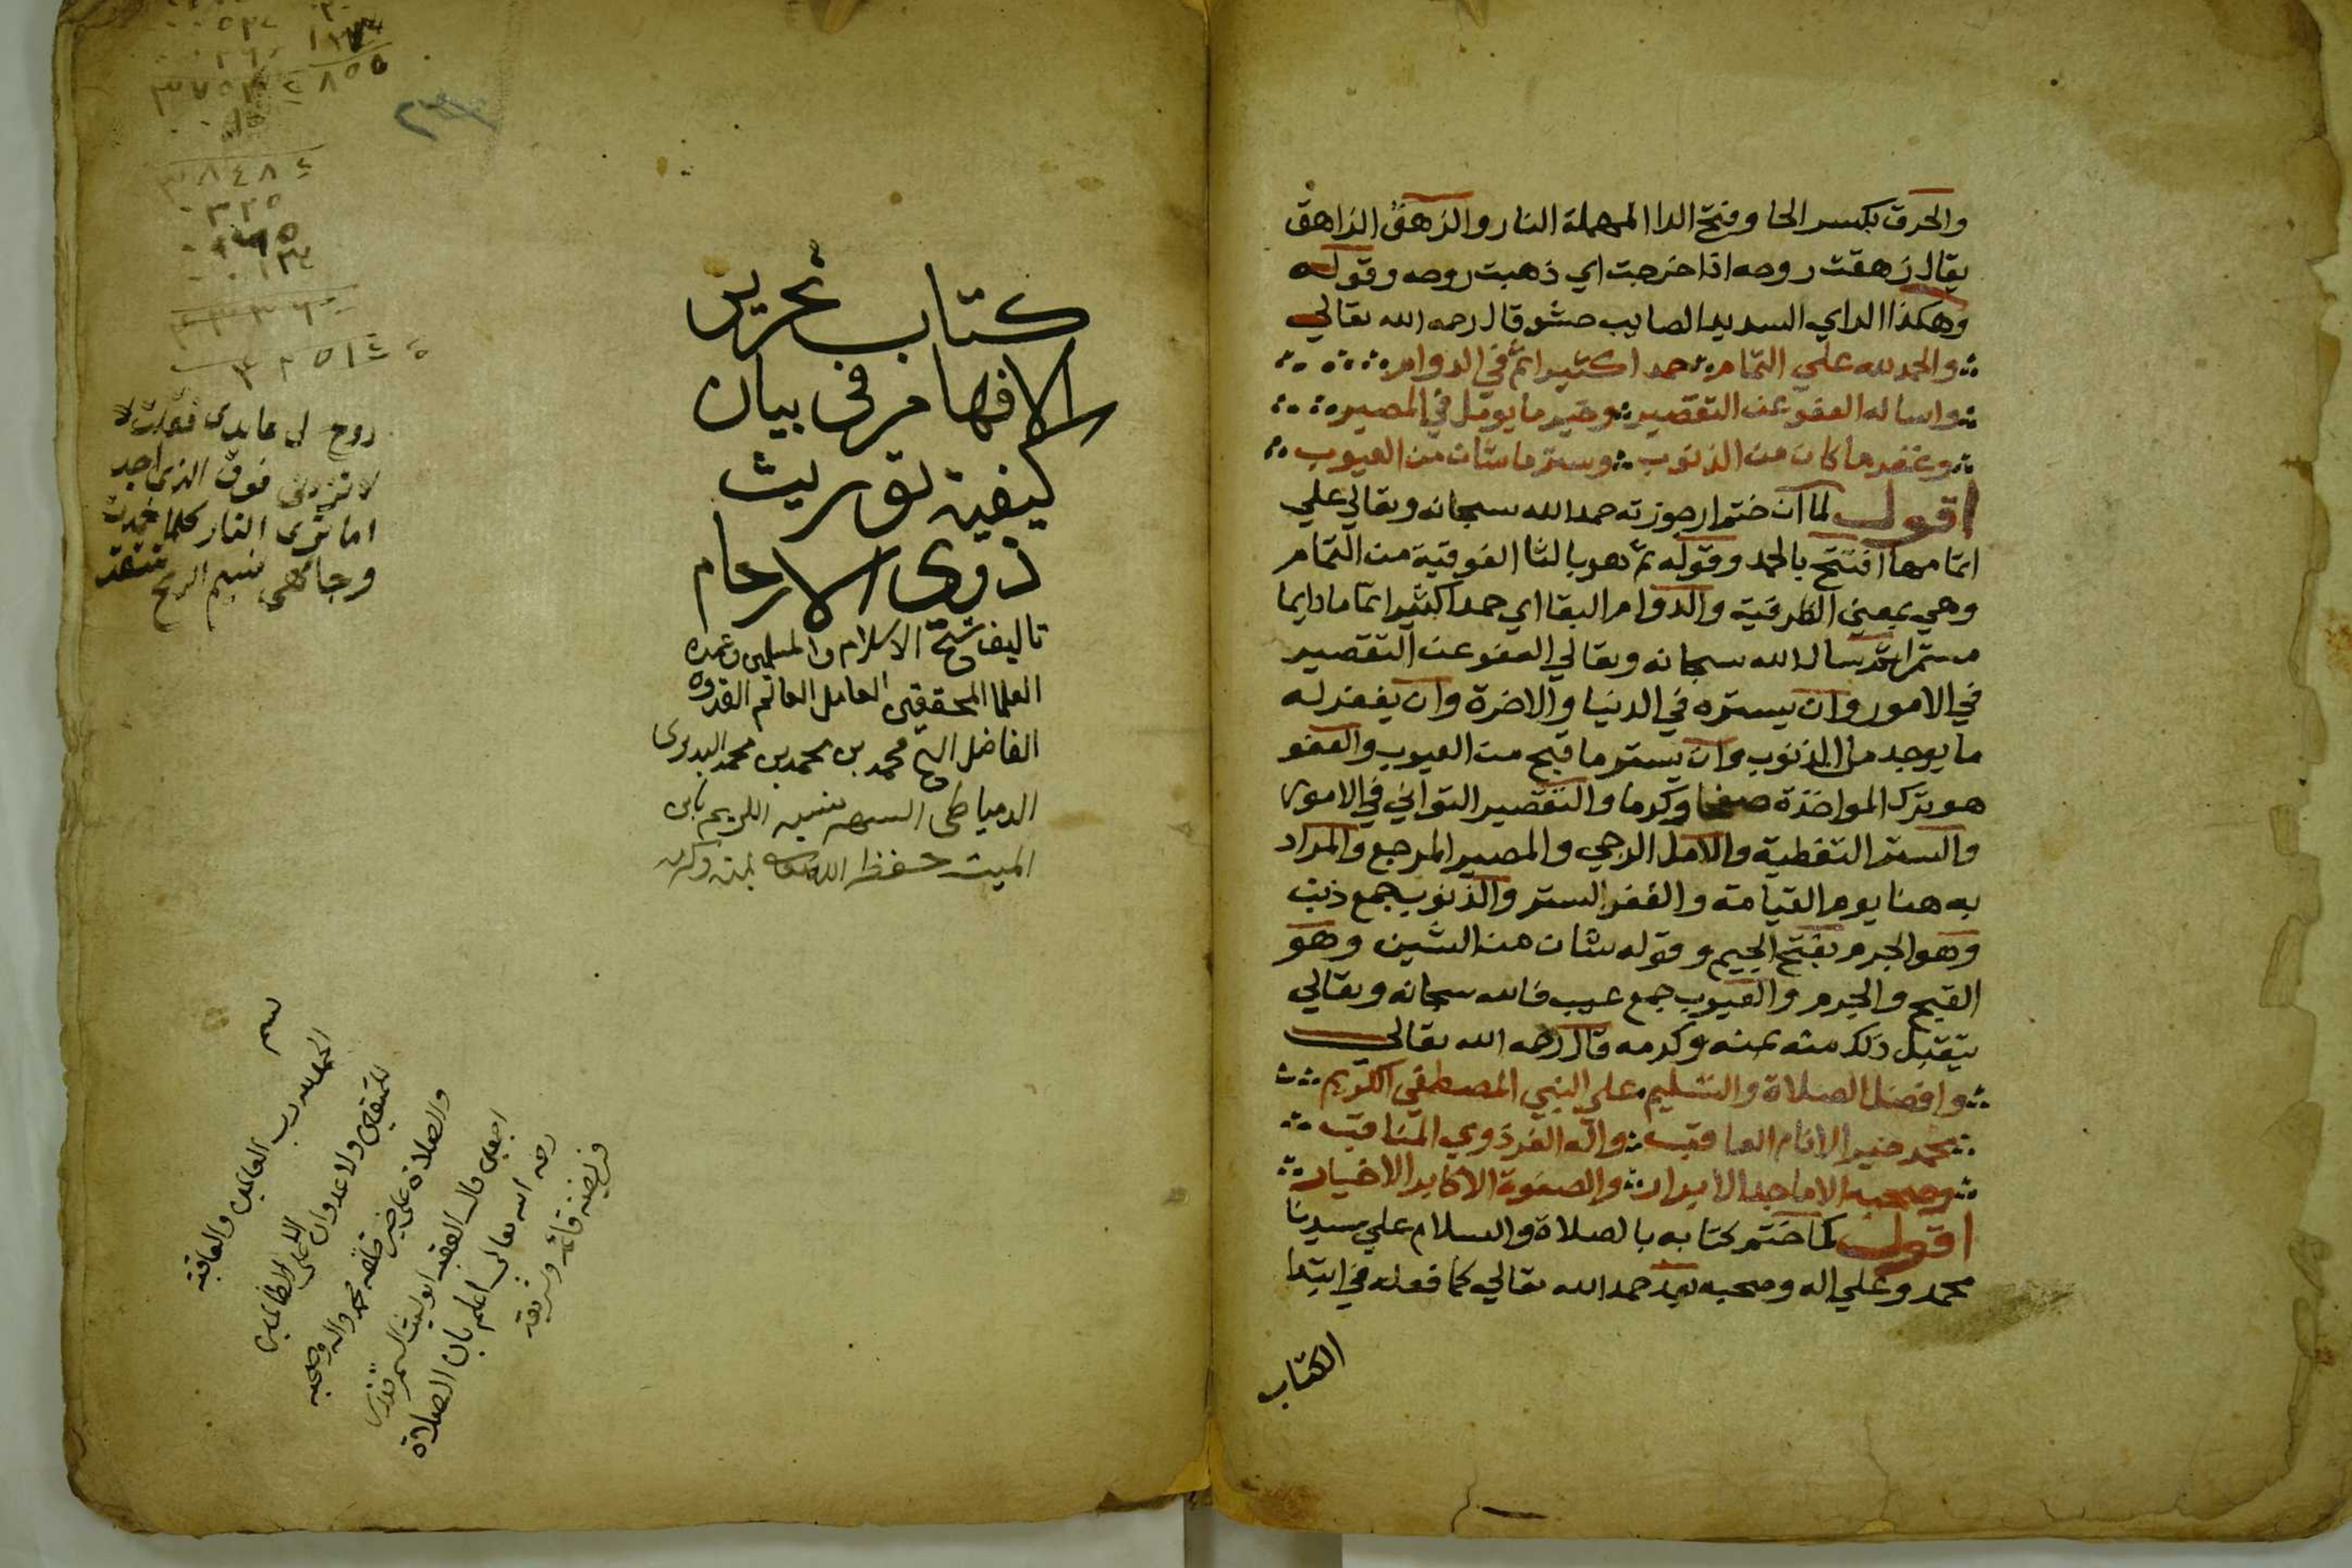 والحرق بكسر الحا وفتح الرا المهملة النار والزهق الزاهق
يقال زهقت روحه اذا خرجت اي ذهبت روحه وقوله
وهكذا الراي السديد الصايب حشو قال رحمه الله تعالي
والحمد لله علي التمام حمدا كثيرا تم في الدوام
واساله العفو عن التقصير وخير ما يومل في المصير
وغفر ما كان من الذنوب وستر ما شان من العيوب
اقول لما ان ختم ارجوزته حمد الله سبحانه وتعالي علي
اتمامها افتتح بالحمد وقوله تم هو بالتا الفوقية من التمام
وهي بمعني الظرفية والدوام البقا اي حمدا كثيرا تماما دايما
مستمرا ثم سال الله سبحانه وتعالي العفو عن التقصير
في الامور وان يستره في الدنيا والاخرة وان يغفر له
ما يوجد من الذنوب وان يستر ما قبح من العيوب والعفو
هو ترك المواخذة صفحا وكرما والتقصير التواني في الامور
والستر التغطية والامل الرجي والمصير المرجع والمراد
به هنا يوم القيامة والغفر الستر والذنوب جمع ذنب
وهو الجرم بفتح الجيم وقوله شان من الشين وهو
القبح والجرم والعيوب جمع عيب فالله سبحانه وتعالي
يتقبل ذلك منه بمنه وكرمه قال رحمه الله تعالي
وافضل الصلاة والتسليم علي النبي المصطفي الكريم
محمد خير الانام العاقب واله الغر ذوي المناقب
وصحبه الاماجد الابرار والصفوة الاكابر الاخيار
اقول لما ختم كتابه بالصلاة والسلام علي سيدنا
محمد وعلي اله وصحبه بعد حمد الله تعالي كما فعله في ابتدا
الكتاب
كتاب تحرير
الافهام في بيان
كيفية توريث
ذوى الارحام
تاليف شيخ الاسلام والمسلمين وعمدة
العلما المحققين العامل العالم القدوه
الفاضل الشيخ محمد بن محمد بن محمد البديرى
الدمياطى الشهير نسبه الكريم بابن
الميت حفظه الله تعالى بمنه وكرمه
٣٨٤٨٤
لا تزدنى فوق الذى اجد
اما ترى النار كلما خمدت
وجاءها نسيم الريح تتقد
بسم
الحمد لله رب العالمين والعاقبة
للمتقين ولا عدوان الا على الظالمين
والصلاة على خير خلقه محمد واله وصحبه
اجمعين قال الفقيه ابو ليث السمرقندى
رحمه الله تعالى اعلم بان الصلاة
فريضة قائمة وشريعة